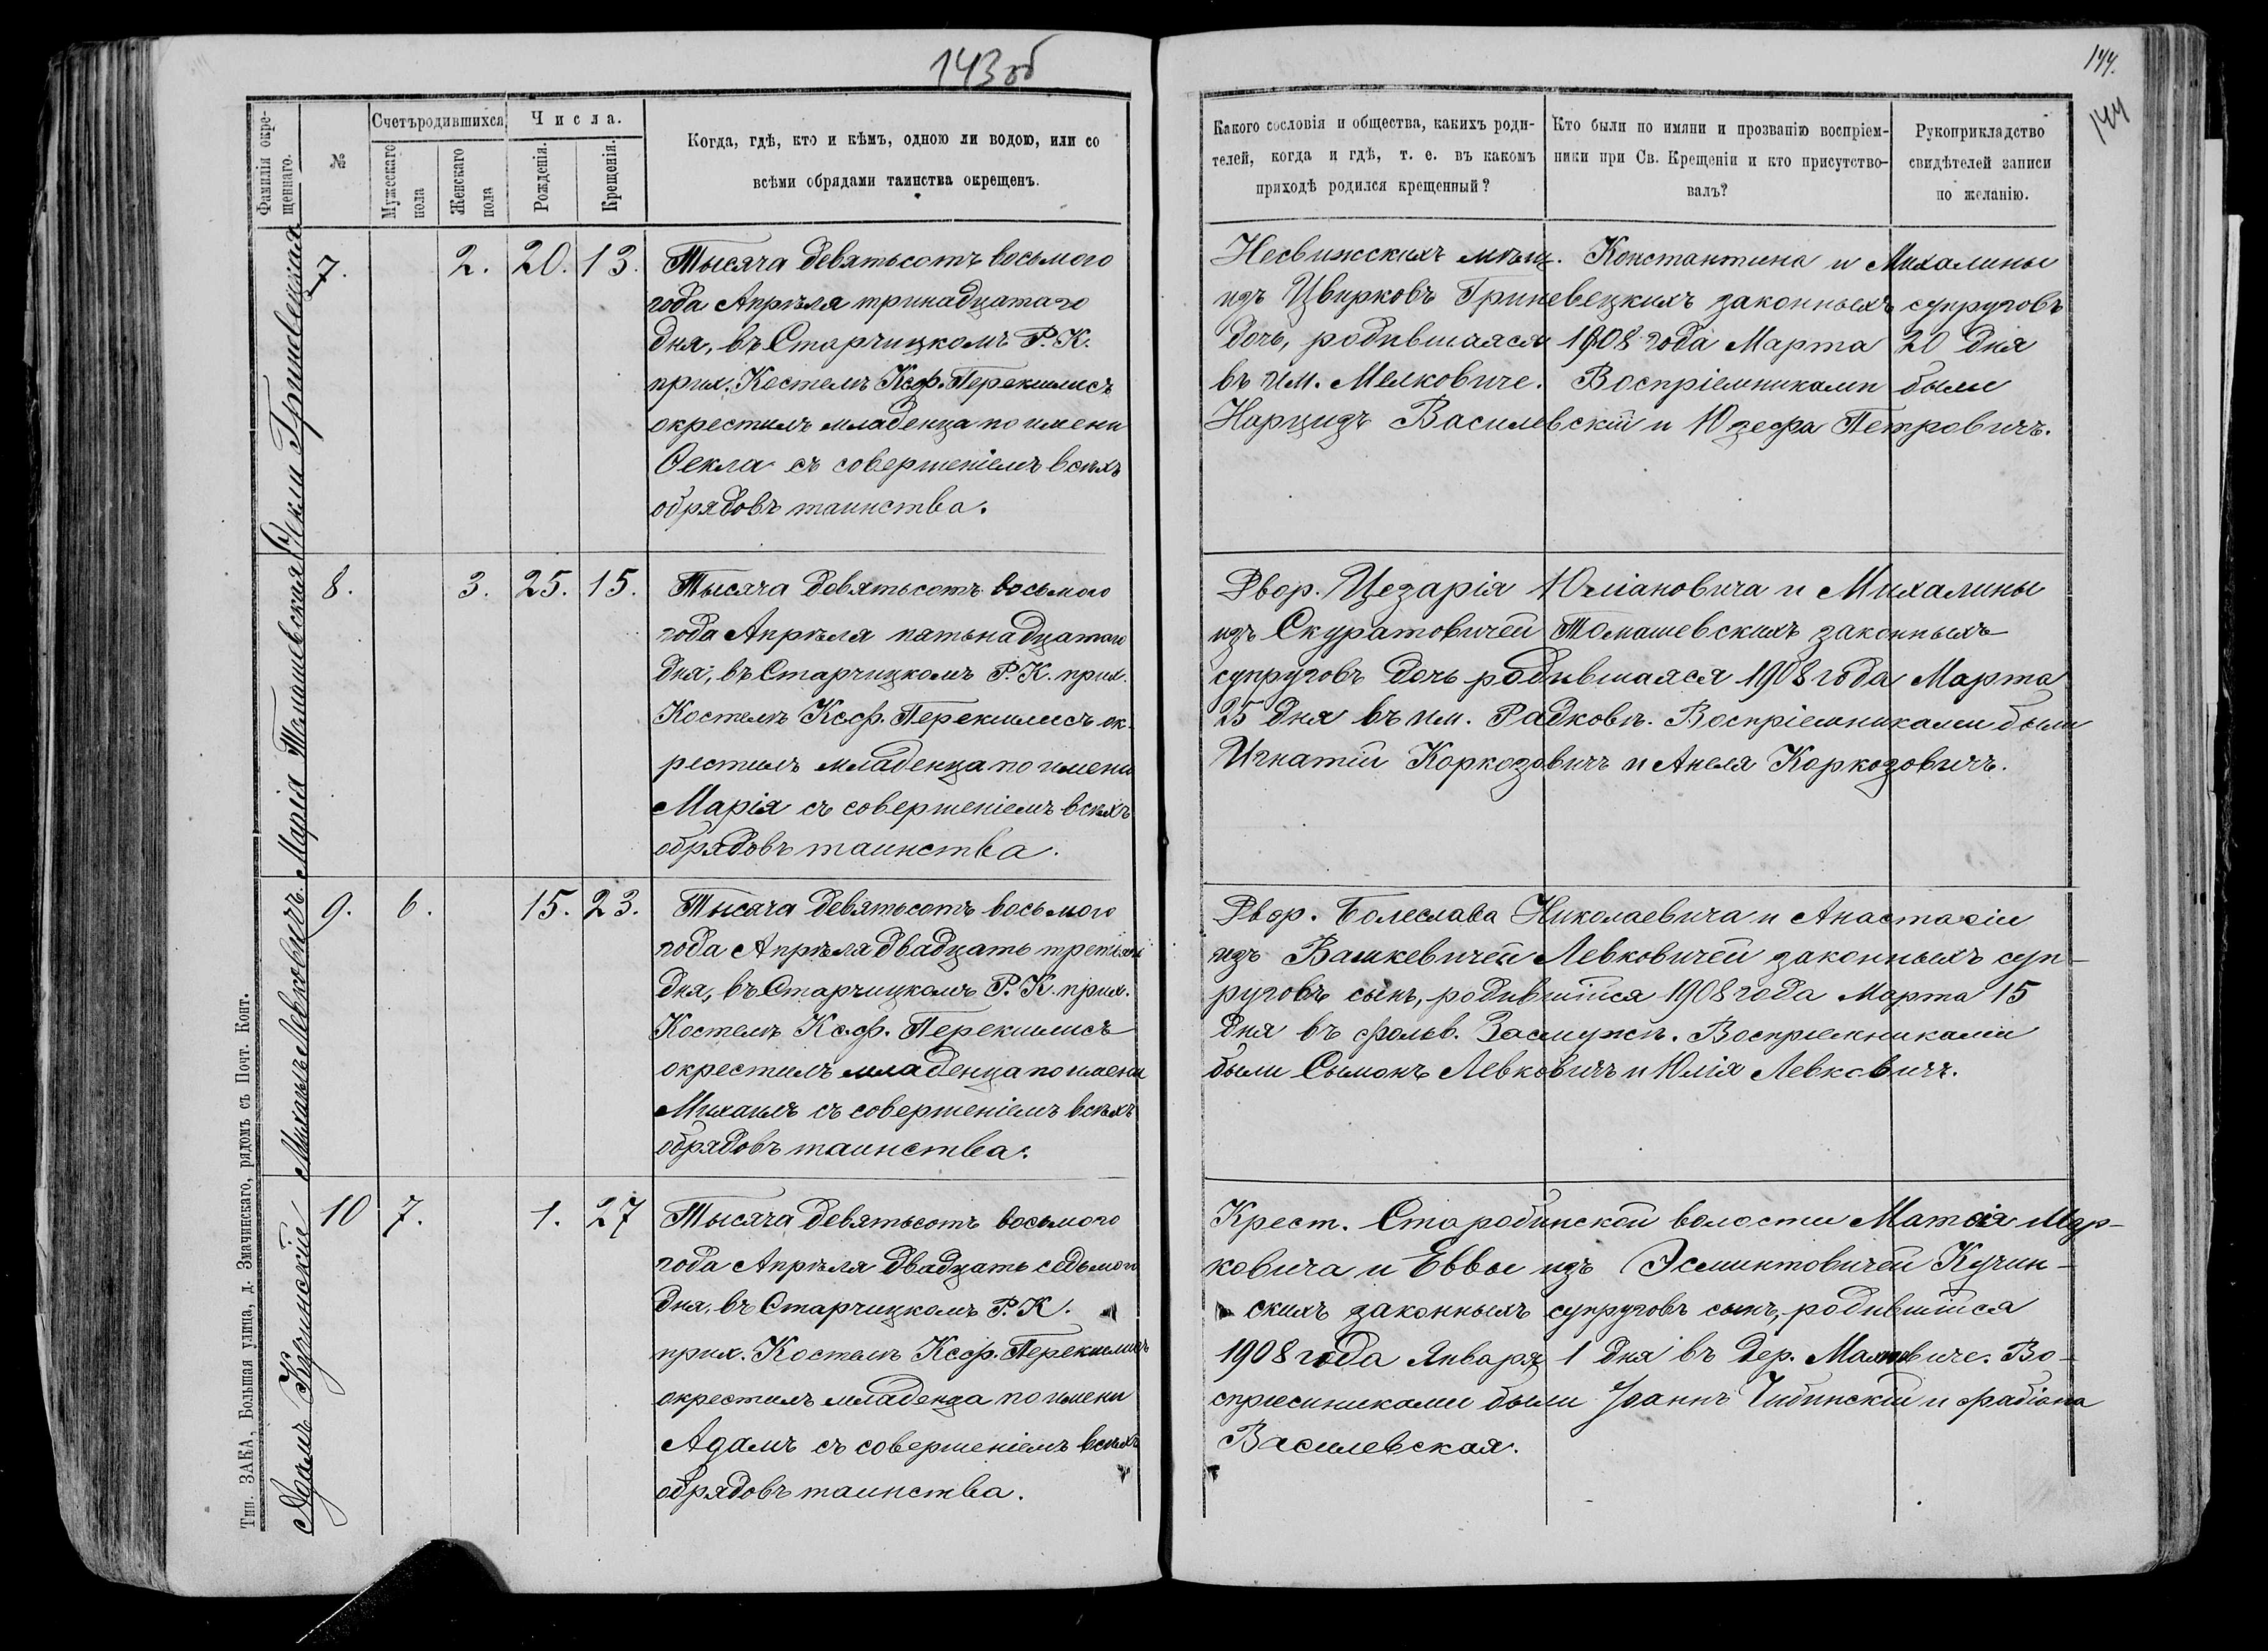 143об
144.
144
Фамилія окре-
щеннаго.
№
Счетъ родившихся
Мужескаго
пола
Женскаго
пола
Числа.
Рожденія.
Крещенія.
Когда, гдѣ, кто и кѣмъ, одною ли водою, или со
всѣми обрядами таинства окрещенъ.
Какого сословія и общества, какихъ роди-
телей, когда и гдѣ, т. е. въ какомъ
приходѣ родился крещенный?
Кто были по имяни и прозванію воспріем-
ники при Св. Крещеніи и кто присутство-
валъ?
Рукоприкладство
свидѣтелей записи
по желанію.
Ѳекли Гриневецкая
7. 2. 20. 13.
Тысяча девятьсотъ восьмого
года Апрѣля тринадцатаго
дня, въ Старчицкомъ Р. К.
прих. Костелѣ Ксф. Перекшлисъ
окрестилъ младенца по имени
Ѳекла съ совершеніемъ всѣхъ
обрядовъ таинства.
Несвижскихъ мѣщ. Константина и Михалины
изъ Цвирковъ Гриневецкихъ законныхъ супруговъ
дочь, родившаяся 1908 года Марта 20 дня
въ им. Мелковиче. Воспріемниками были
Нарцизъ Василевскій и Юзефа Петровичъ.
Марія Томашевская
8. 3. 25. 15.
Тысяча девятьсотъ восьмого
года Апрѣля пятьнадцатого
дня, въ Старчицкомъ Р. К. прих.
Костелѣ Ксф. Перекшлисъ ок-
рестилъ младенца по имени
Марія съ совершеніемъ всѣхъ
обрядовъ таинства.
Двор. Цезарія Юліановича и Михалины
изъ Скуратовичей Томашевскихъ законныхъ
супруговъ дочь родившаяся 1908 года Марта
25 дня въ им. Радковѣ. Воспріемниками были
Игнатій Коркозовичъ и Анеля Коркозовичъ.
Михаилъ Левковичъ
9. 6. 15. 23.
Тысяча девятьсотъ восьмого
года Апрѣля двадцать третьяго
дня, въ Старчицкомъ Р. К. прих.
Костелѣ Ксф. Перекшлисъ
окрестилъ младенца по имени
Михаилъ съ совершеніемъ всѣхъ
обрядовъ таинства.
Двор. Болеслава Николаевича и Анастасіи
изъ Вашкевичей Левковичей законныхъ суп-
руговъ сынъ, родившійся 1908 года Марта 15
дня въ фольв. Засмужѣ. Воспріемниками
были Сымонъ Левковичъ и Юлія Левковичъ.
Адамъ Кучинскіе
10 7. 1. 27
Тысяча девятьсотъ восьмого
года Апрѣля двадцать седьмого
дня, въ Старчицкомъ Р. К.
прих. Костелѣ Ксф. Перекшлисъ
окрестилъ младенца по имени
Адамъ съ совершеніемъ всѣхъ
обрядовъ таинства.
Крест. Старобинской волости Матвія Мар-
ковича и Еввы изъ Эсминтовичей Кучин-
скихъ законныхъ супруговъ сынъ, родившійся
1908 года Января 1 дня въ дер. Во-
спріемниками были Іоаннъ Чибинскій и Фабіона
Василевская.
Тип. ЗАКА, Большая улица, д. Змачинскаго, рядомъ съ Почт. Конт.